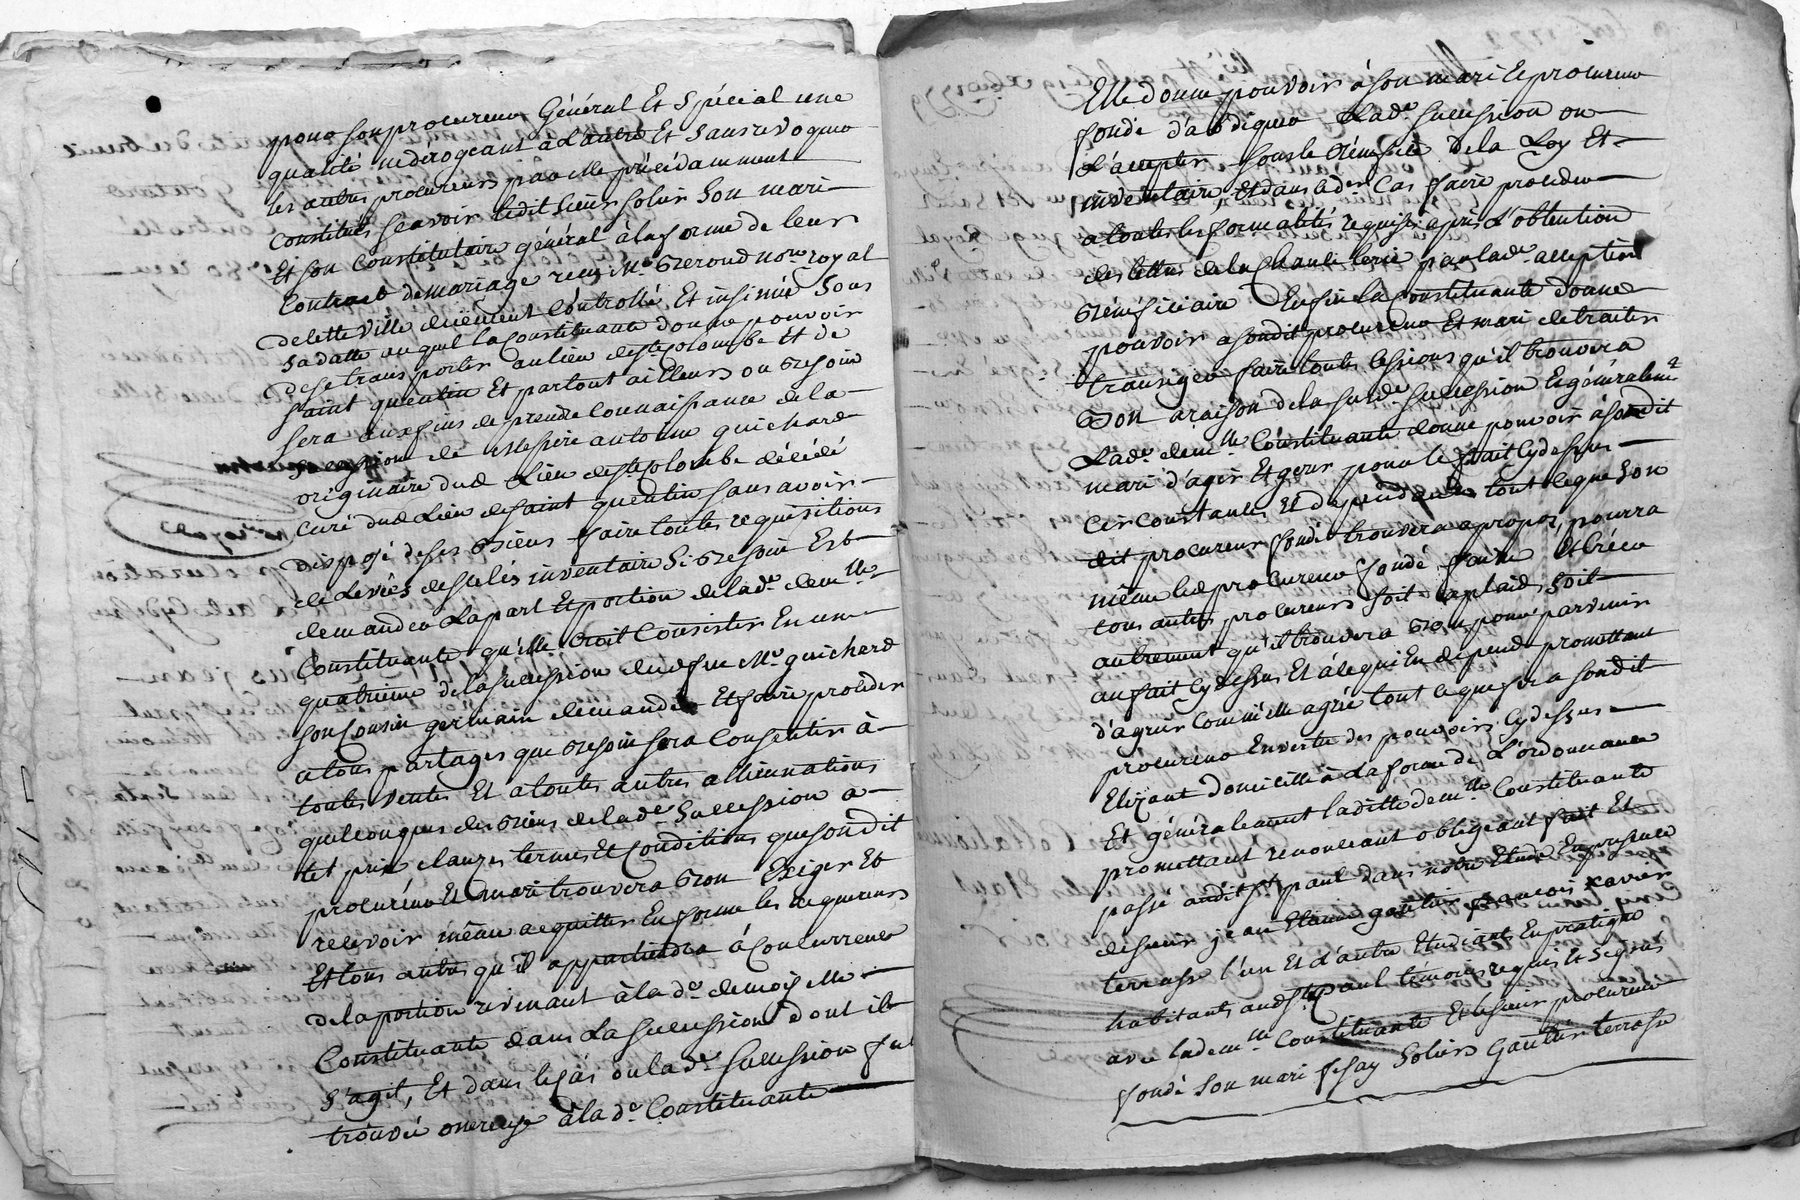 pour son procureur Général Et Spécial une
qualité nedérogeant à L'autre Et sans révoquer
les autres procureurs par elle précédamment
Constitués scavoir ledit sieur soliers son mari
Et son Constitutaire général à la forme de leur
Contract de mariage reçu Me Beroud nore royal
de cette ville duëment Controllé Et insinué sous
sa datte auquel la Constituante donne pouvoir
de se transporter au lieu de ste Colombe et de
saint quentin Et partout ailleurs ou Besoin
sera aux fins de prendre Connaissance de la
succession de messire antoine guichard
originaire dud Lieu de ste Colombe décédé
Curé dud Lieu de saint quentin sans avoir
Disposé de ses Biens faire toutes réquisitions
de Levées de scelés inventaire si Besoin Est
demander La part Et portion de lade demlle
Constituante qu'elle Croit Consister En un
quatrième de la succession dud feu Mre guichard
son Cousin germain demander Et faire procéder
a tous partages que Besoin sera Consentir à
toutes ventes Et a toutes autres alliénations
quelconques des Biens de lade Succession a
tel prix clauzes termes Et Conditions que son dit
procureur Et mari trouvera Bon Exiger Et
recevoir même acquitter En forme les acquereurs
Et tous autres qu'il appartiendra à Concurrence
de la portion revenant à la de demoiselle
Constituante dans La succession dont il
s'agit, Et dans le Cas ou la de succession fut
trouvée onereuse à la de Constituante
Elle donne pouvoir à son mari Et procureur
fondé d'abdiquer Lade succession ou
L'accepter sous le Bénéfice de la Loy Et
inventaire, Et dans le der Cas faire procéder
a toutes les formalités requises après L'obtention
des lettres de la Chancellerie par lade acception
Bénéficiaire Enfin la Constituante donne
pouvoir a sondit procureur Et mari de traiter
transiger faire toutes Cessions qu'il trouvera
Bon a raison de la susde succession Et généralemt
Lade demlle Constituante donne pouvoir à sondit
mari d'agir Et gérer pour le fait Cydessus
Circonstances Et dépendances tout Ce que son
dit procureur fondé trouvera apropos, pourra
même led procureur fondé faire Et Créer
tous autres procureurs soit aplaids soit
autrement qu'il trouvera Bon pour parvenir
au fait Cydessus Et à ce qui En dépend promettant
d'agréer Comme elle agrée tout ce que fera sondit
procureur En vertu des pouvoirs Cydessus
Elizant domicille à La forme de L'ordonnance
Et généralement ladite demlle Constituante
promettant renonceant obligeant fait Et
passé audit st paul dans notre Etude En présence
de sieur jean Etienne gaultier françois xavier
terrasse l'un Et d'autre Etudiant En pratique
habitants aud st paul témoins requis Et signés
avec lademlle Constituante Et le sieur procureur
fondé Son mari fessy Soliers Gaultier terrasse